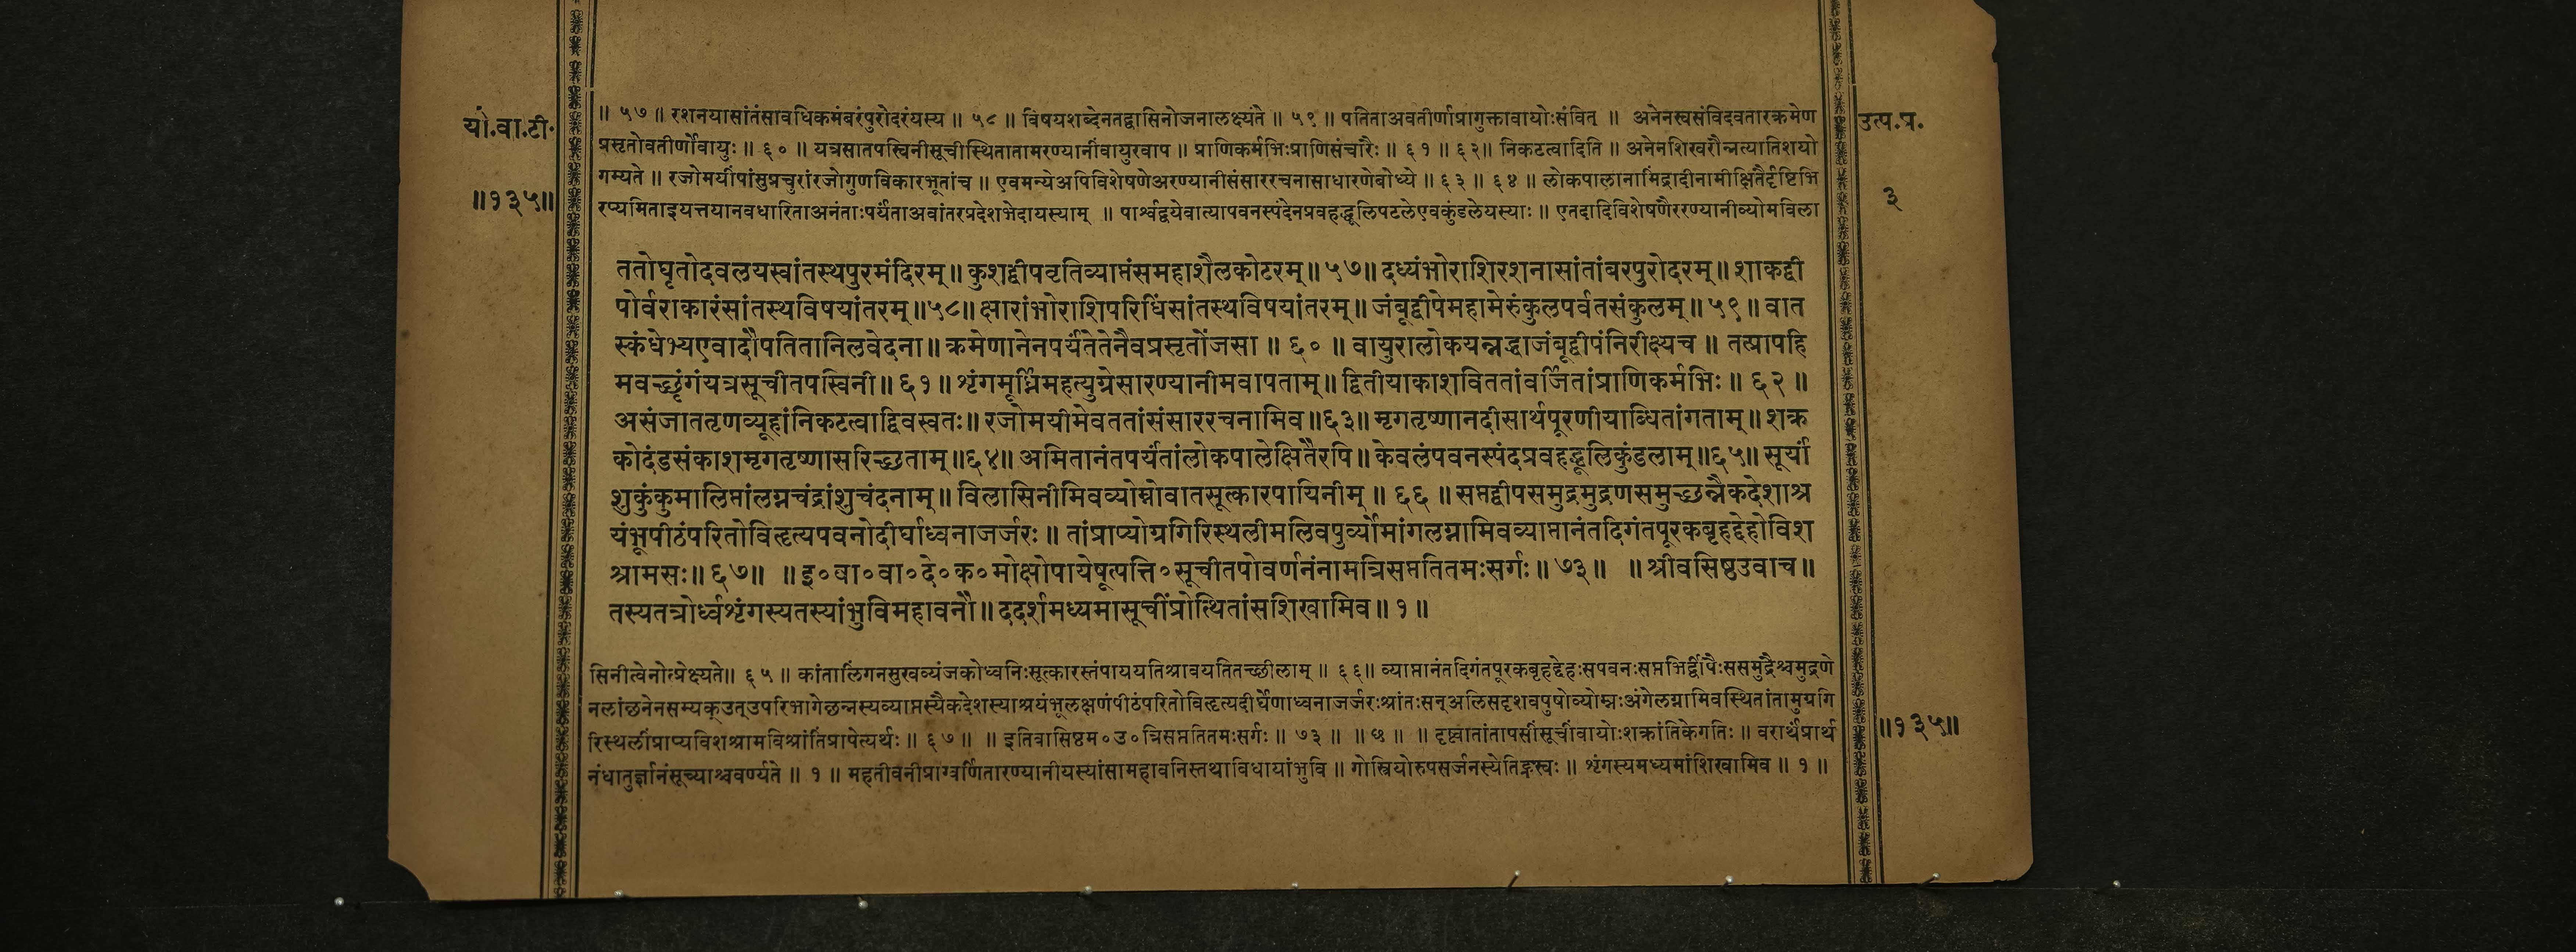 यो.वा.टी.
॥१३५॥
॥ ५७ ॥ रशनयासांतंसावधिकमंबरंपुरोदरंयस्य ॥ ५८ ॥ विषयशब्देनतद्वासिनोजनालक्ष्यंते ॥ ५९ ॥ पतिताअवतीर्णाप्रागुक्तावायोःसंवित् ॥ अनेनस्वसंविदवतारक्रमेण
प्रसृतोवतीर्णोवायुः ॥ ६० ॥ यत्रसातपस्विनीसूचीस्थितातामरण्यानींवायुरवाप ॥ प्राणिकर्मभिःप्राणिसंचारैः ॥ ६१ ॥ ६२॥ निकटत्वादिति ॥ अनेनशिखरौन्नत्यातिशयो
गम्यते ॥ रजोमयींपांसुप्रचुरांरजोगुणविकारभूतांच ॥ एवमन्येअपिविशेषणेअरण्यानीसंसाररचनासाधारणेबोध्ये ॥ ६३ ॥ ६४ ॥ लोकपालानामिंद्रादीनामीक्षितैर्दृष्टिभि
रप्यमिताइयत्तयानवधारिताअनंताःपर्यंताअवांतरप्रदेशभेदायस्याम् ॥ पार्श्वद्वयेवात्यापवनस्पंदेनप्रवहद्धूलिपटलेएवकुंडलेयस्याः ॥ एतदादिविशेषणैररण्यानीव्योमविला
ततोघृतोदवलयस्वांतस्थपुरमंदिरम् ॥ कुशद्वीपवृतिव्याप्तंसमहाशैलकोटरम् ॥ ५७ ॥ दध्यंभोराशिरशनासांतांबरपुरोदरम् ॥ शाकद्वी
पोर्वराकारंसांतस्थविषयांतरम् ॥५८॥ क्षारांभोराशिपरिधिंसांतस्थविषयांतरम् ॥ जंबूद्वीपेमहामेरुंकुलपर्वतसंकुलम् ॥ ५९ ॥ वात
स्कंधेभ्यएवादौपतितानिलवेदना ॥ क्रमेणानेनपर्यंतेतेनैवप्रसृतोंजसा ॥ ६० ॥ वायुरालोकयन्नद्धाजंबूद्वीपंनिरीक्ष्यच ॥ तत्प्रापहि
मवच्छृंगंयत्रसूचीतपस्विनी ॥ ६१ ॥ शृंगमूर्ध्निमहत्युग्रेसारण्यानीमवापताम् ॥ द्वितीयाकाशविततांवर्जितांप्राणिकर्मभिः ॥ ६२ ॥
असंजाततृणव्यूहांनिकटत्वाद्विवस्वतः ॥ रजोमयीमेवततांसंसाररचनामिव ॥६३॥ मृगतृष्णानदीसार्थपूरणीयाब्धितांगताम् ॥ शक्र
कोदंडसंकाशमृगतृष्णासरिच्छताम् ॥६४॥ अमितानंतपर्यंतांलोकपालेक्षितैरपि ॥ केवलंपवनस्पंदप्रवहद्धूलिकुंडलाम् ॥६५॥ सूर्यां
शुकुंकुमालिप्तांलग्नचंद्रांशुचंदनाम् ॥ विलासिनीमिवव्योम्नोवातसूत्कारपायिनीम् ॥ ६६ ॥ सप्तद्वीपसमुद्रमुद्रणसमुच्छन्नैकदेशाश्र
यंभूपीठंपरितोविहृत्यपवनोदीर्घाध्वनाजर्जरः ॥ तांप्राप्योग्रगिरिस्थलीमलिवपुर्व्योमांगलग्नामिवव्याप्तानंतदिगंतपूरकबृहद्देहोविश
श्रामसः ॥ ६७ ॥ ॥ इ०वा०वा०दे०क०मोक्षोपायेषूत्पत्ति०सूचीतपोवर्णनंनामत्रिसप्ततितमःसर्गः ॥ ७३ ॥ ॥ श्रीवसिष्ठउवाच ॥
तस्यतत्रोर्ध्वशृंगस्यतस्यांभुविमहावनौ ॥ ददर्शमध्यमासूचींप्रोत्थितांसशिखामिव ॥ १ ॥
सिनीत्वेनोत्प्रेक्ष्यते॥ ६५ ॥ कांतालिंगनसुखव्यंजकोध्वनिःसूत्कारस्तंपाययतिश्रावयतितच्छीलाम् ॥ ६६॥ व्याप्तानंतदिगंतपूरकबृहद्देहःसपवनःसप्तभिर्द्वीपैःससमुद्रैश्चमुद्रणे
नलांछनेनसम्यक्उत्उपरिभागेछन्नस्यव्याप्तस्यैकदेशस्याश्रयंभूलक्षणंपीठंपरितोविहृत्यदीर्घेणाध्वनाजर्जरःश्रांतःसन्अलिसदृशवपुषोव्योम्नःअंगेलग्नामिवस्थितांतामुग्रगि
रिस्थलींप्राप्यविशश्रामविश्रांतिंप्रापेत्यर्थः ॥ ६७ ॥ ॥ इतिवासिष्ठम०उ०त्रिसप्ततितमःसर्गः ॥ ७३ ॥ ॥ छ ॥ ॥ दृष्ट्वातांतापसींसूचींवायोःशक्रांतिकेगतिः ॥ वरार्थंप्रार्थ
नंधातुर्ज्ञानंसूच्याश्चवर्ण्यते ॥ १ ॥ महतीवनीप्राग्वर्णितारण्यानीयस्यांसामहावनिस्तथाविधायांभुवि ॥ गोस्त्रियोरुपसर्जनस्येतिह्रस्वः ॥ शृंगस्यमध्यमांशिखामिव ॥ १ ॥
उत्प.प्र.
३
॥१३५॥